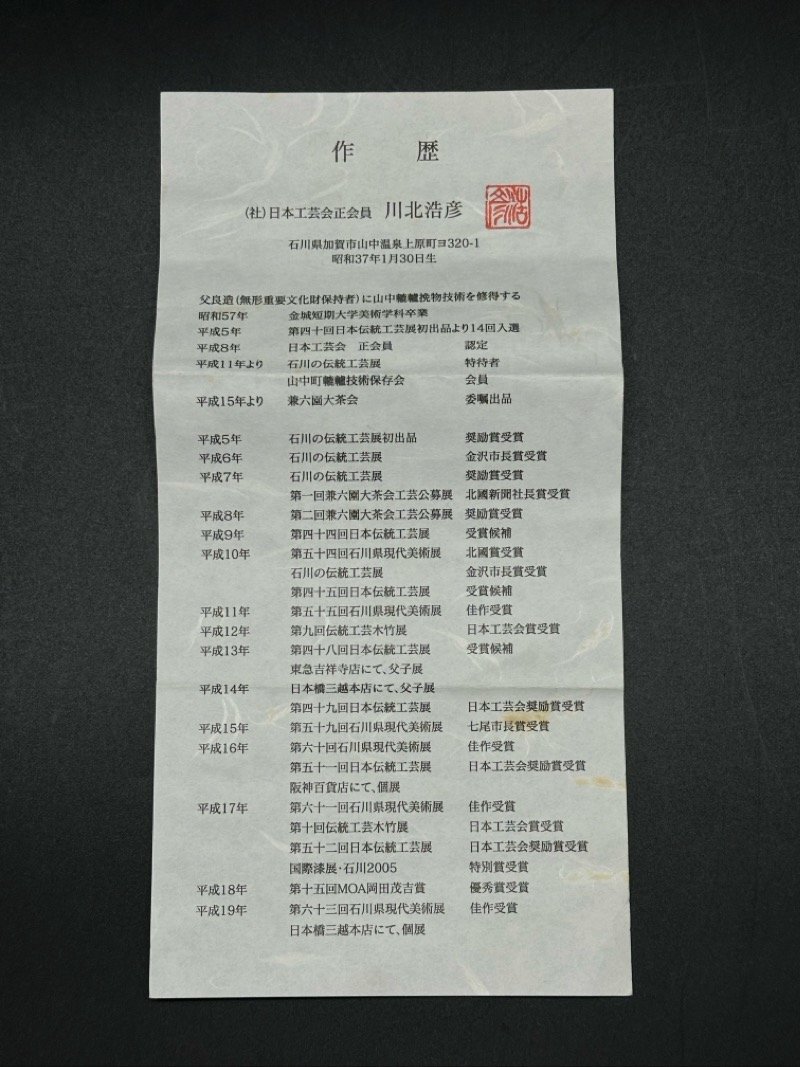 作 歴
(社)日本工芸会正会員 川北浩彦
石川県加賀市山中温泉上原町ヨ320-1
昭和37年1月30日生
父良造(無形重要文化財保持者)に山中轆轤挽物技術を修得する
昭和57年 金城短期大学美術学科卒業
平成5年 第四十回日本伝統工芸展初出品より14回入選
平成8年 日本工芸会 正会員 認定
平成11年より 石川の伝統工芸展 特待者
山中町轆轤技術保存会 会員
平成15年より 兼六園大茶会 委嘱出品
平成5年 石川の伝統工芸展初出品 奨励賞受賞
平成6年 石川の伝統工芸展 金沢市長賞受賞
平成7年 石川の伝統工芸展 奨励賞受賞
第一回兼六園大茶会工芸公募展 北國新聞社長賞受賞
平成8年 第二回兼六園大茶会工芸公募展 奨励賞受賞
平成9年 第四十四回日本伝統工芸展 受賞候補
平成10年 第五十四回石川県現代美術展 北國賞受賞
石川の伝統工芸展 金沢市長賞受賞
第四十五回日本伝統工芸展 受賞候補
平成11年 第五十五回石川県現代美術展 佳作受賞
平成12年 第九回伝統工芸木竹展 日本工芸会賞受賞
平成13年 第四十八回日本伝統工芸展 受賞候補
東急吉祥寺店にて、父子展
平成14年 日本橋三越本店にて、父子展
第四十九回日本伝統工芸展 日本工芸会奨励賞受賞
平成15年 第五十九回石川県現代美術展 七尾市長賞受賞
平成16年 第六十回石川県現代美術展 佳作受賞
第五十一回日本伝統工芸展 日本工芸会奨励賞受賞
阪神百貨店にて、個展
平成17年 第六十一回石川県現代美術展 佳作受賞
第十回伝統工芸木竹展 日本工芸会賞受賞
第五十二回日本伝統工芸展 日本工芸会奨励賞受賞
国際漆展・石川2005 特別賞受賞
平成18年 第十五回MOA岡田茂吉賞 優秀賞受賞
平成19年 第六十三回石川県現代美術展 佳作受賞
日本橋三越本店にて、個展